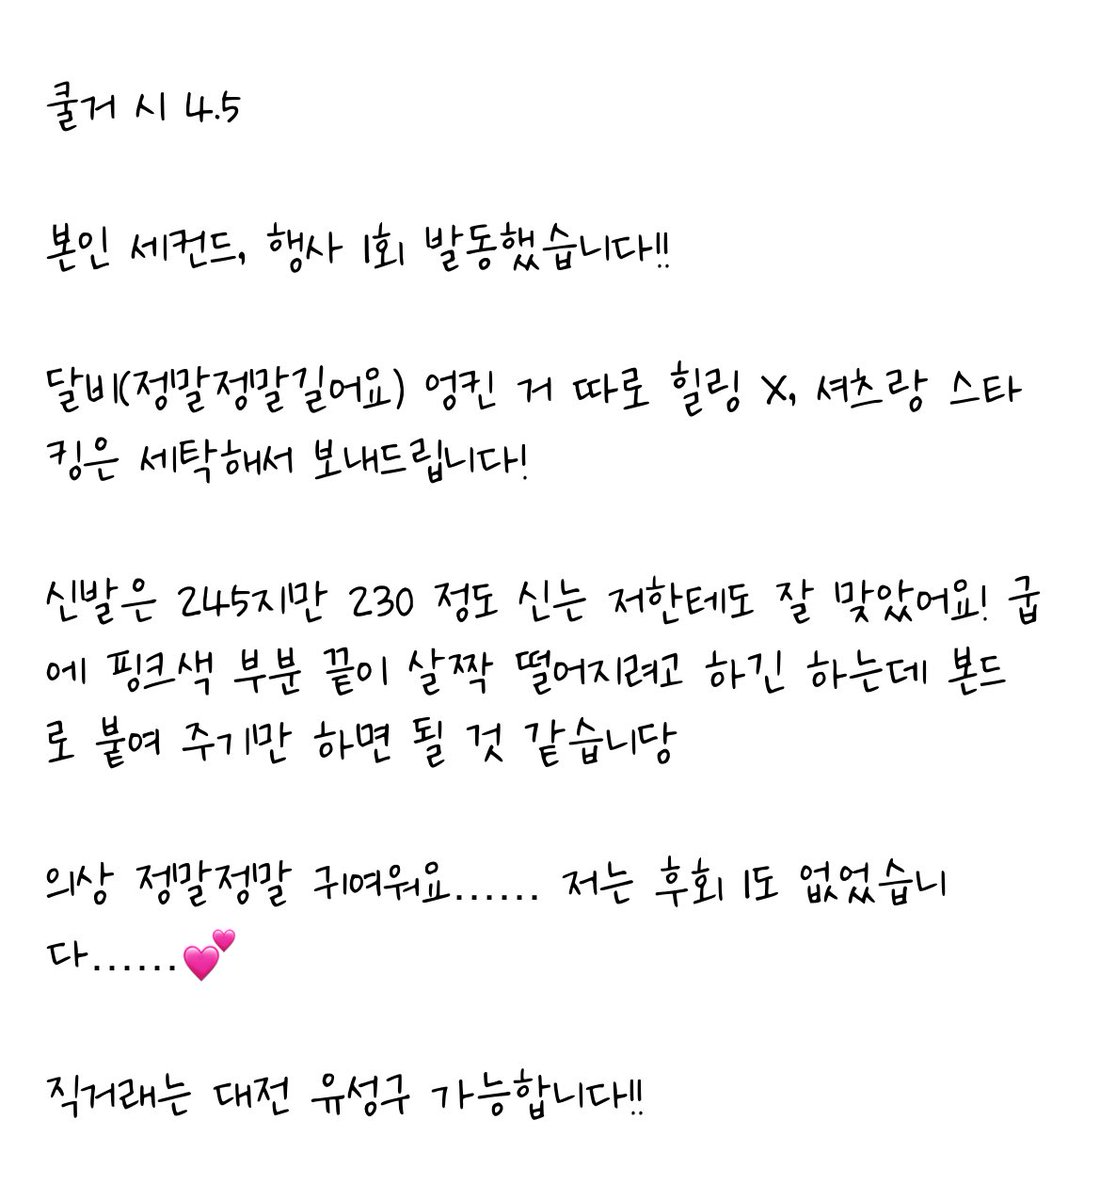 쿨거 시 4.5
본인 세컨드, 행사 1회 발동했습니다!!
달비(정말정말길어요) 엉킨 거 따로 힐링 X, 셔츠랑 스타
킹은 세탁해서 보내드립니다!
신발은 245지만 230 정도 신는 저한테도 잘 맞았어요! 굽
에 핑크색 부분 끝이 살짝 떨어지려고 하긴 하는데 본드
로 붙여 주기만 하면 될 것 같습니당
의상 정말정말 귀여워요...... 저는 후회 1도 없었습니
다......💕
직거래는 대전 유성구 가능합니다!!